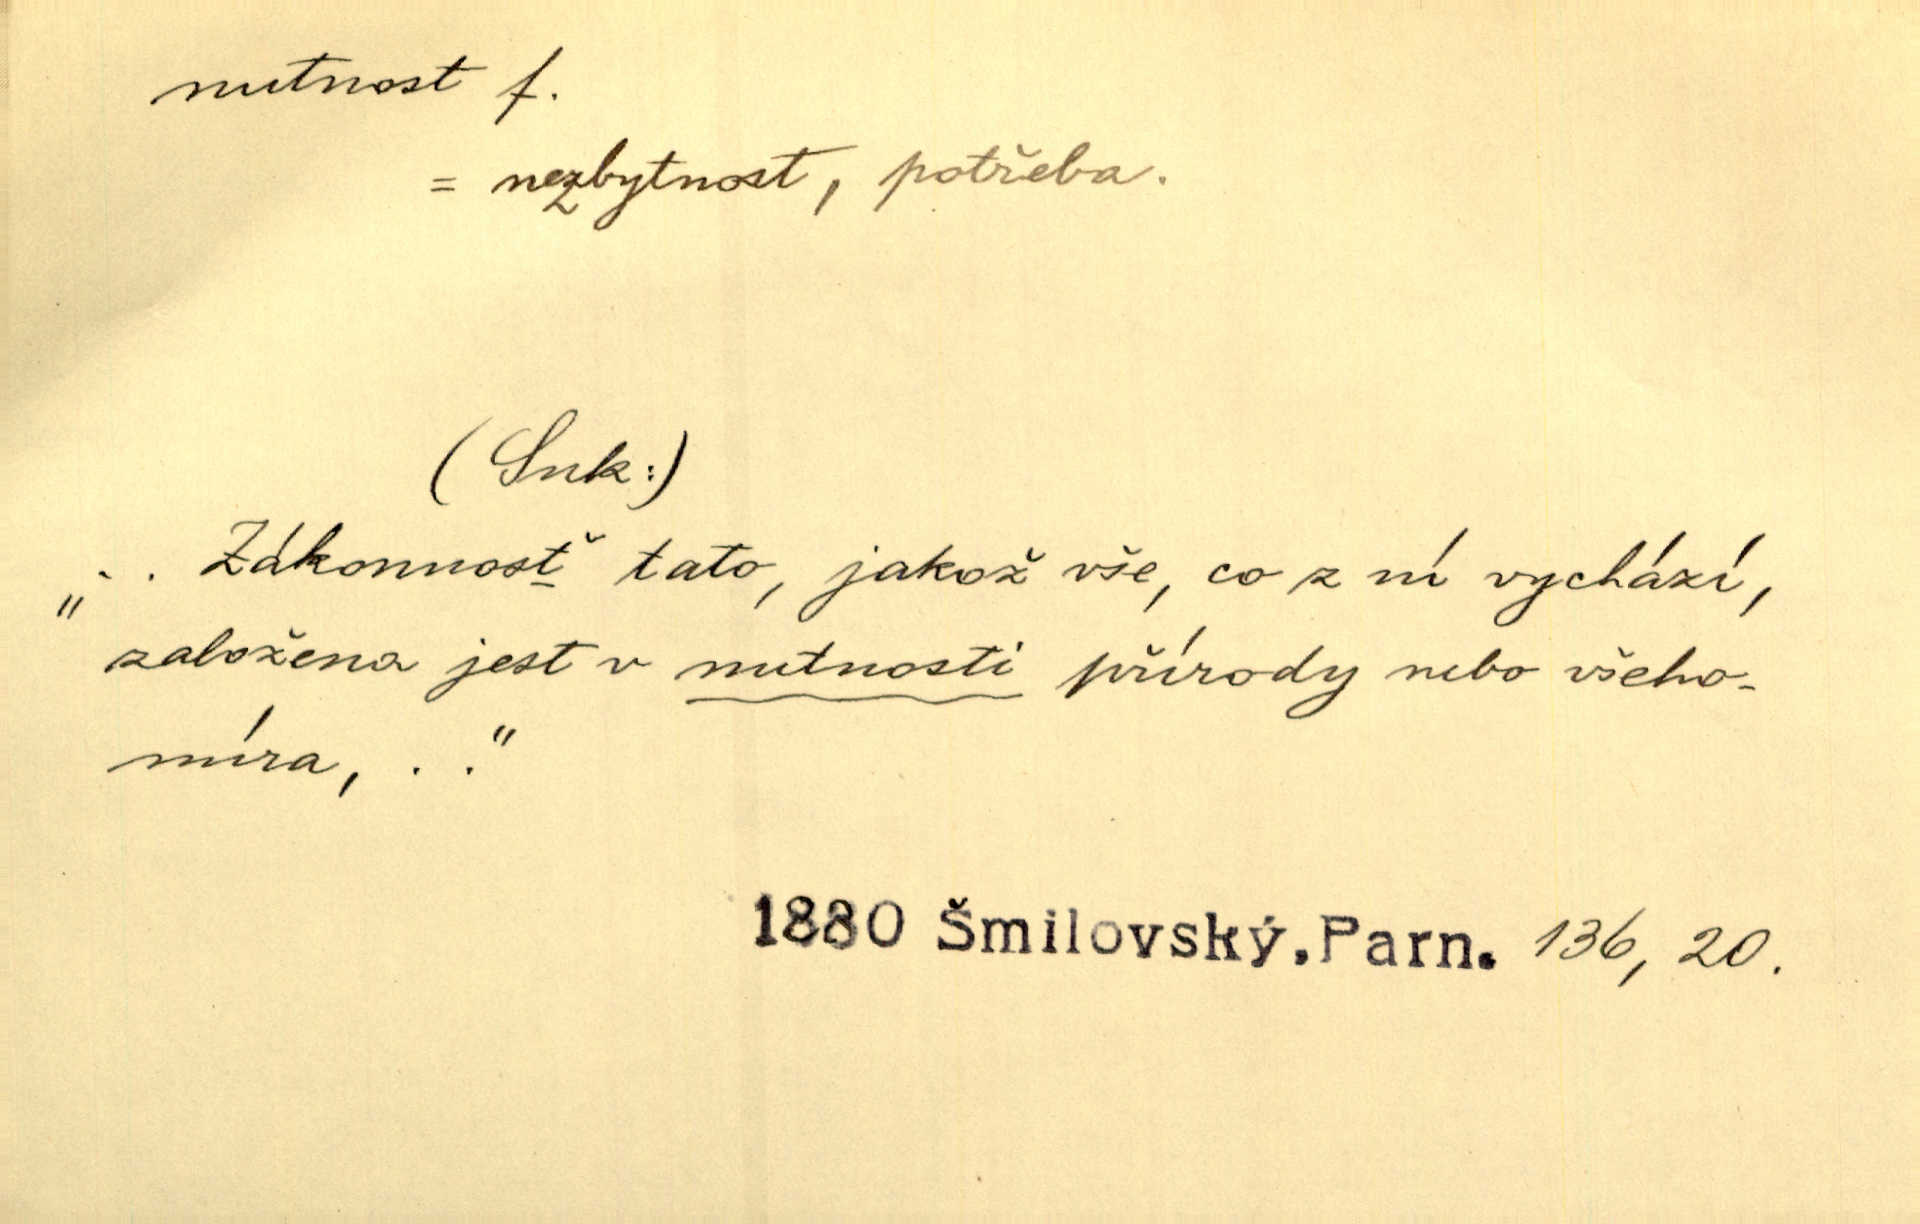 nutnost f.
= nezbytnost, potřeba.
(Snk:)
„. . Zákonnosť tato, jakož vše, co z ní vychází,
založena jest v nutnosti přírody nebo všeho-
míra, . ."
1880 Šmilovský.Parn. 136, 20.